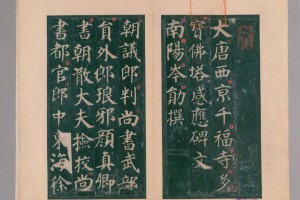 大唐西京千福寺多
寶佛塔感應碑文
南陽岑勛撰
朝議郎判尚書武部
員外郎琅邪顏真卿
書朝散大夫撿挍尚
書都官郎中東海徐